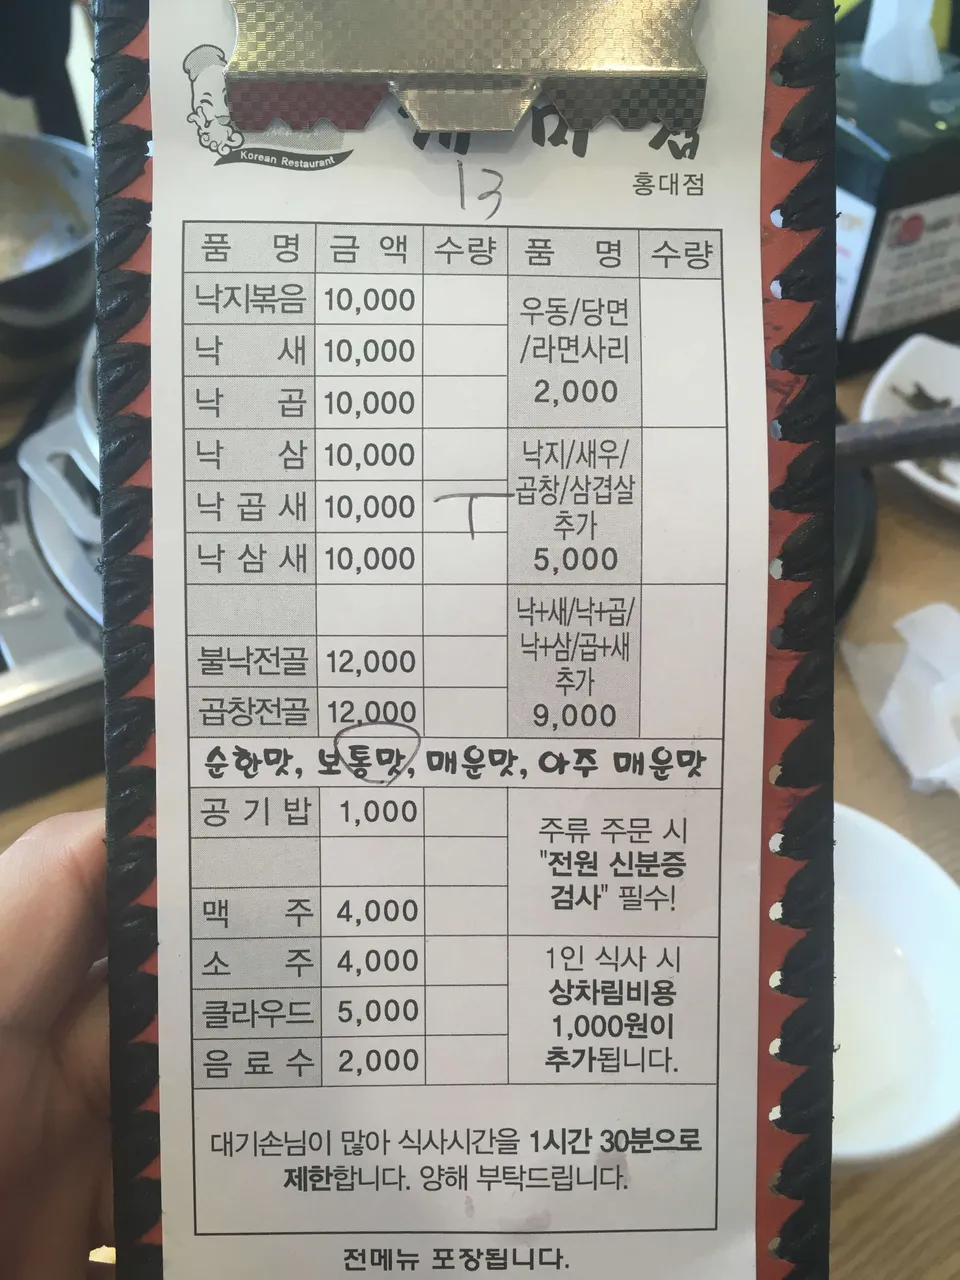 Korean Restaurant
13
홍대점
품 명 금 액 수량 품 명 수량
낙지볶음 10,000
낙 새 10,000
낙 곱 10,000
낙 삼 10,000
낙 곱 새 10,000 T
낙 삼 새 10,000
불낙전골 12,000
곱창전골 12,000
우동/당면
/라면사리
2,000
낙지/새우/
곱창/삼겹살
추가
5,000
낙+새/낙+곱/
낙+삼/곱+새
추가
9,000
순한맛, 보통맛, 매운맛, 아주 매운맛
공 기 밥 1,000
맥 주 4,000
소 주 4,000
클라우드 5,000
음 료 수 2,000
주류 주문 시
"전원 신분증
검사" 필수!
1인 식사 시
상차림비용
1,000원이
추가됩니다.
대기손님이 많아 식사시간을 1시간 30분으로
제한합니다. 양해 부탁드립니다.
전메뉴 포장됩니다.